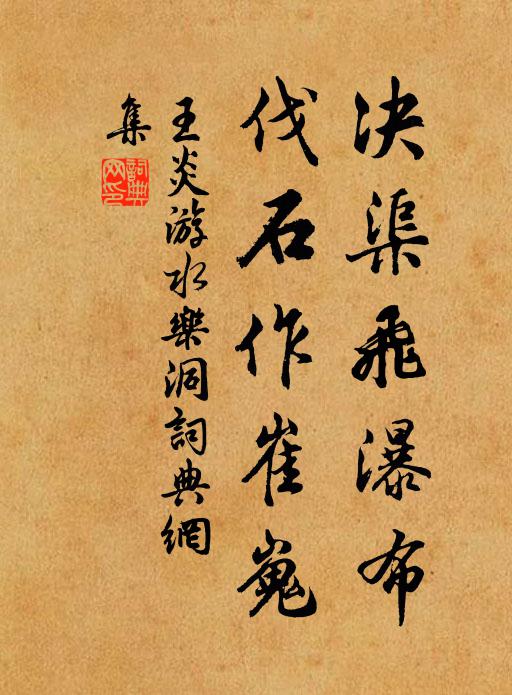 决渠飛瀑布
伐石作崔嵬
王炎游水樂洞詞典網
集
詞典網印